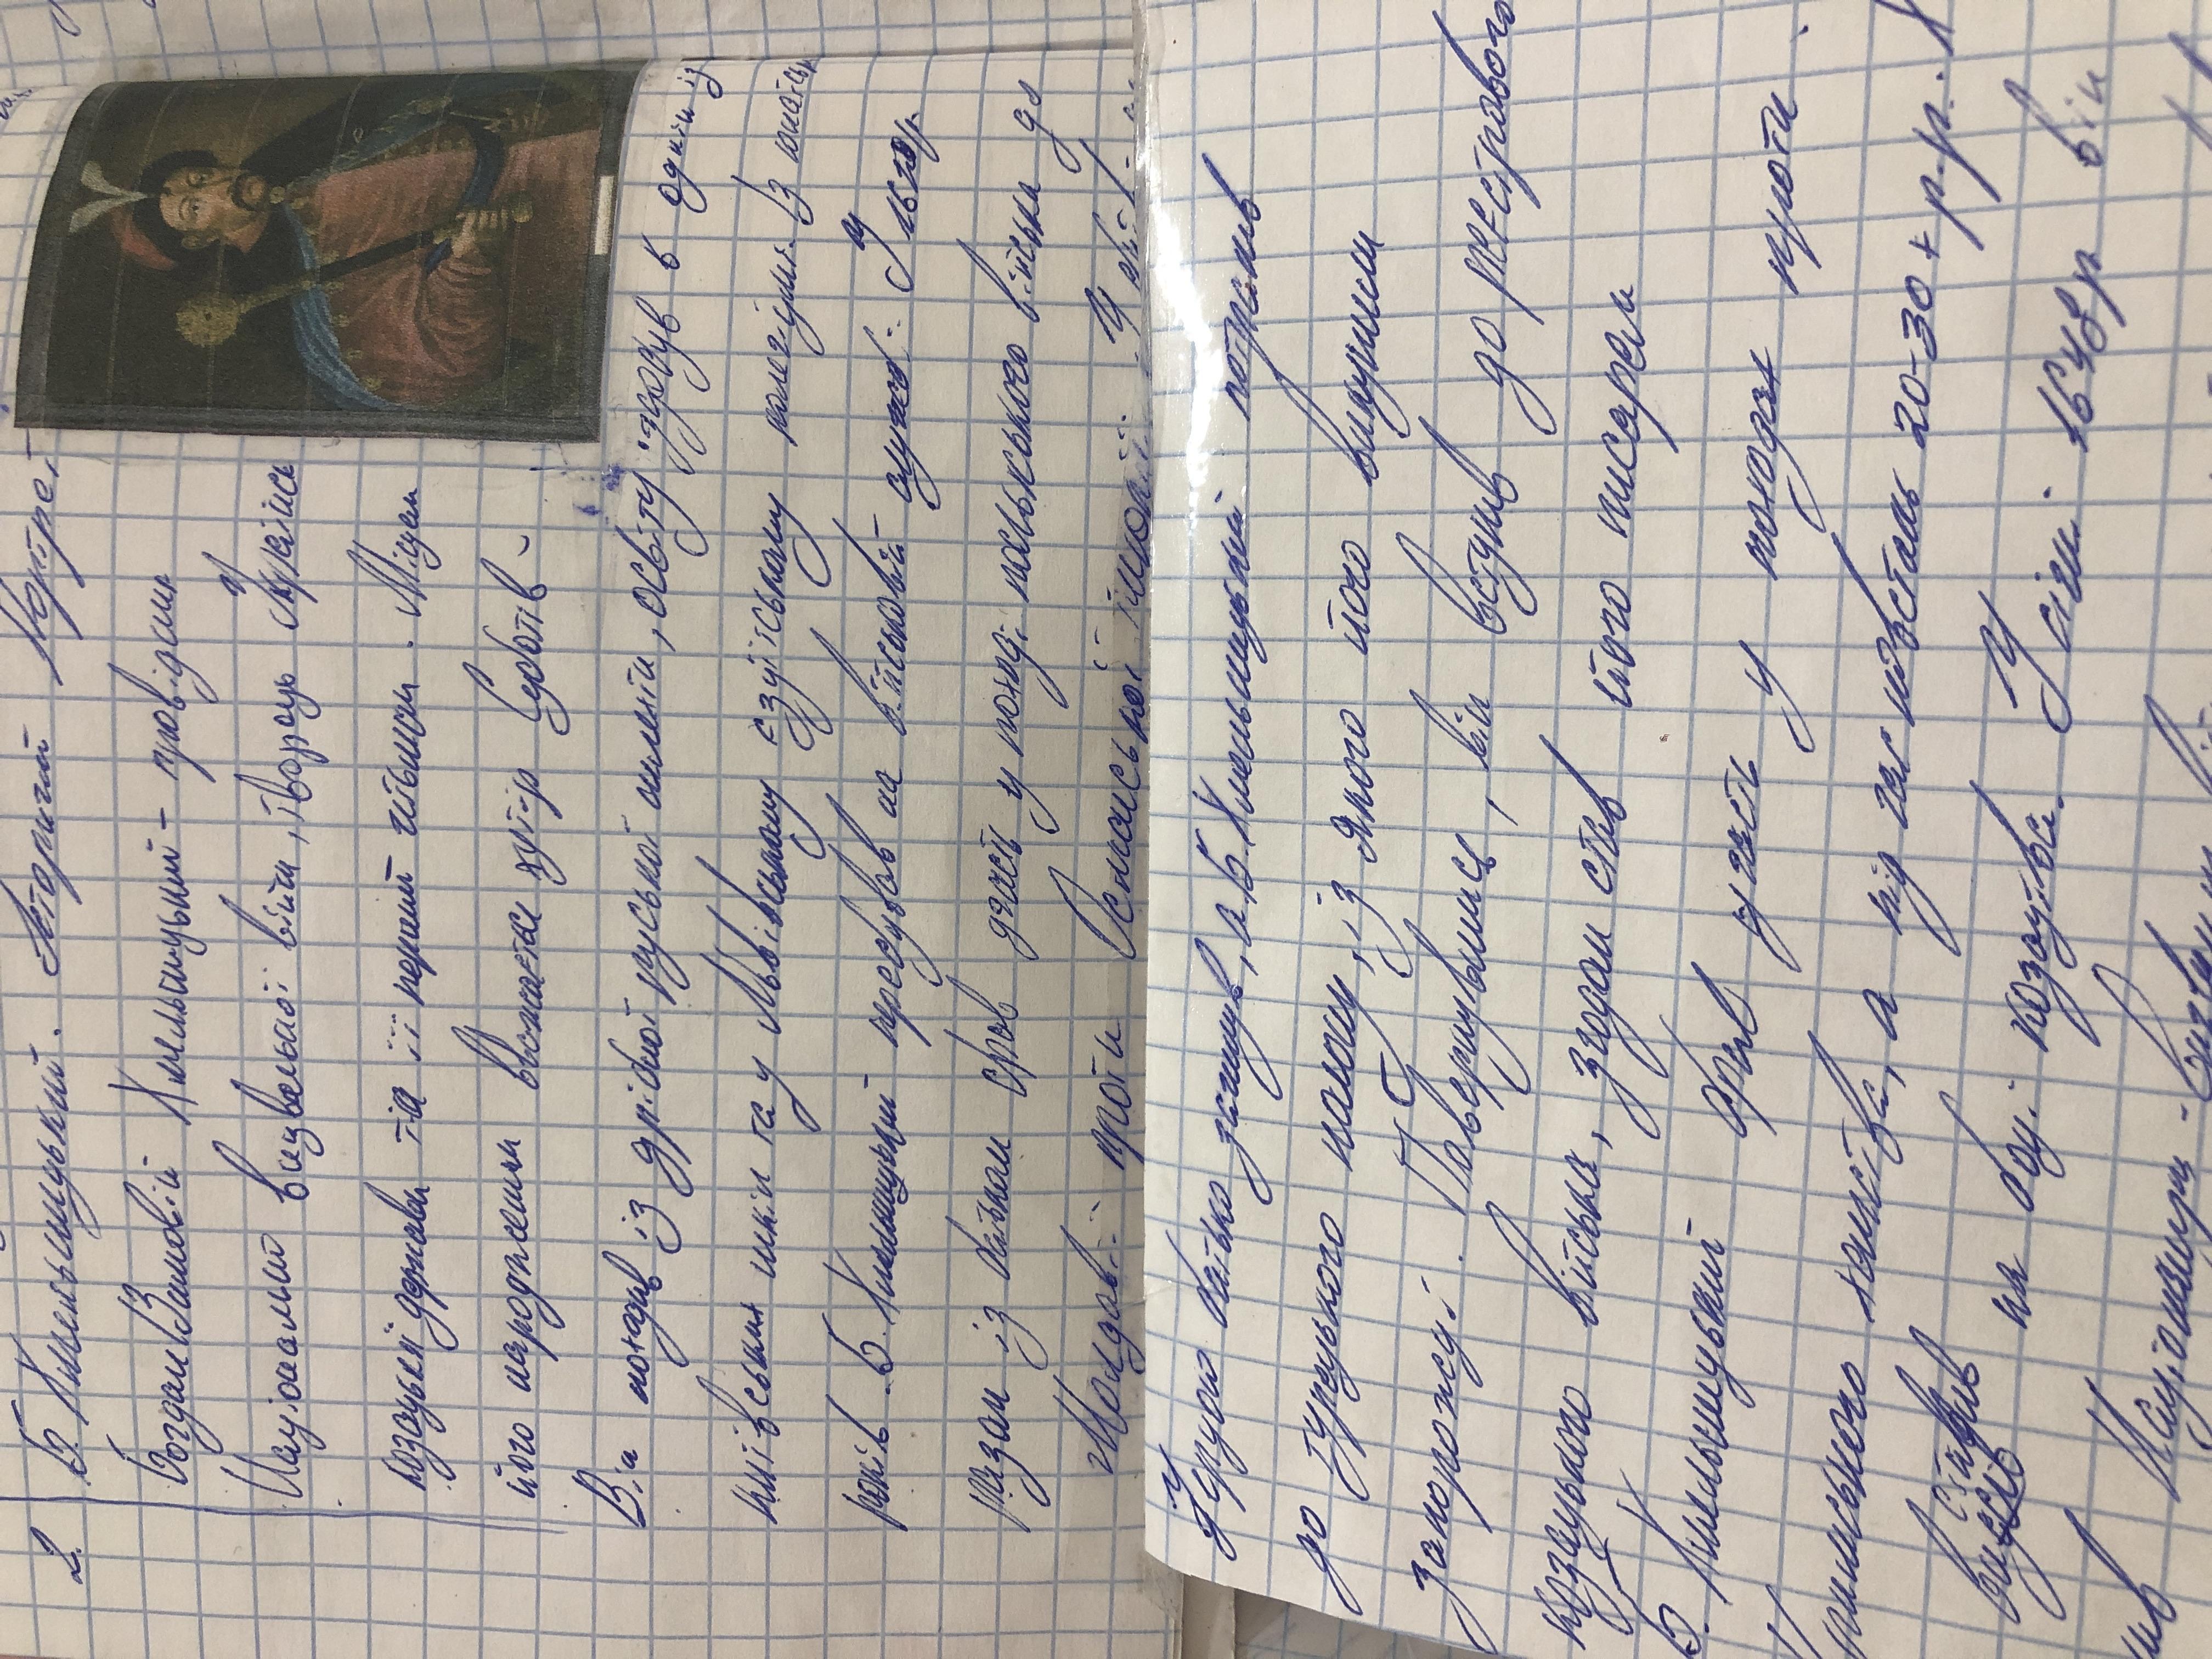 2. Б. Хмельницький. Історичний портрет
Богдан (Зиновій) Хмельницький – провідник
Національно визвольної війни, творець Української
козацької держави та її перший гетьман. Місцем
його народження вважається хутір Суботів.
Він походив із дрібної руської шляхти, освіту здобув в одній із
київських шкіл та у Львівському єзуїтському колегіумі. Із юнацьких
років Б. Хмельницький пересував на військовій службі. У 1620р
разом із батьком брав участь у поході польського війська до
Молдавії проти Османської імперії. У битві
Цецорою батько загинув, а Б. Хмельницький потрапив
до турецького полону, із якого його викупили
запорожці. Повернувшись, він вступив до реєстрового
козацького війська, згодом став його писарем
Б. Хмельницький брав участь у походах проти
Кримського ханства, а під час повстань 20-30х р.р. X
виступив на боці козацтва. У січні 1648р він
Національно-визвольну